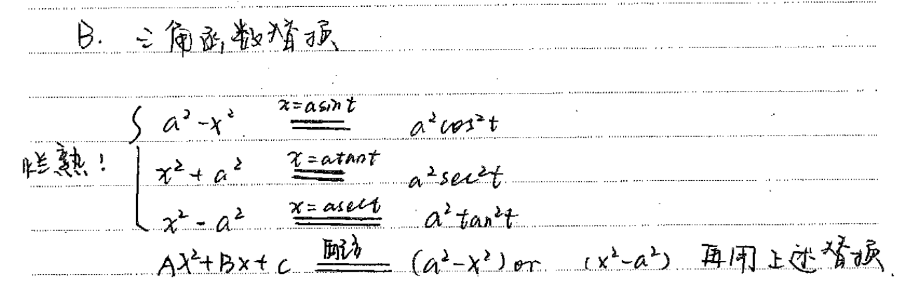 B. 三角函数替换
a²-x² x=asint a²cos²t
烂熟! x²+a² x=atant a²sec²t
x²-a² x=asect a²tan²t
Ax²+Bx+c 配方 (a²-x²) or (x²-a²) 再用上述替换.